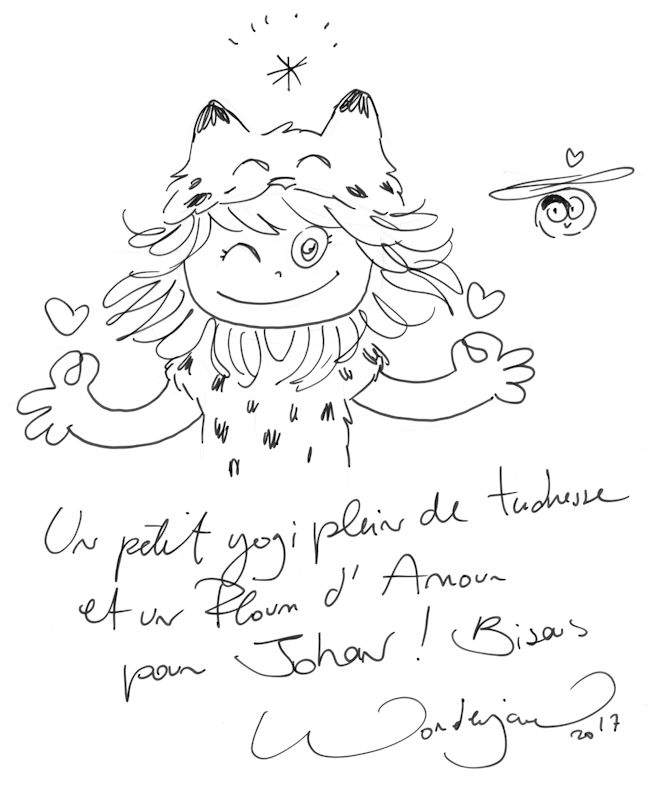 Un petit yogi plein de tendresse
et un Ploum d'Amour
pour Johan! Bisous
Wonderjane 2017